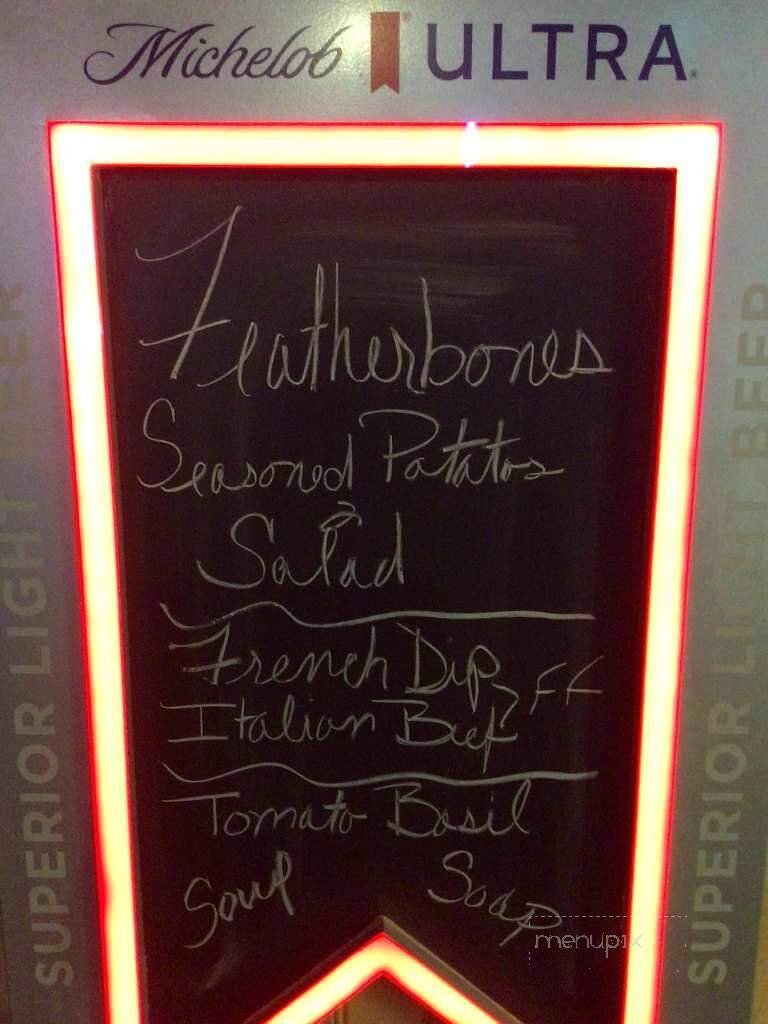 Michelob ULTRA
Featherbones
Seasoned Patatos
&
Salad
French Dip
Italian Beef > FF
Tomato Basil
Soup Soap
SUPERIOR LIGHT BEER
SUPERIOR LIGHT BEER
menupix